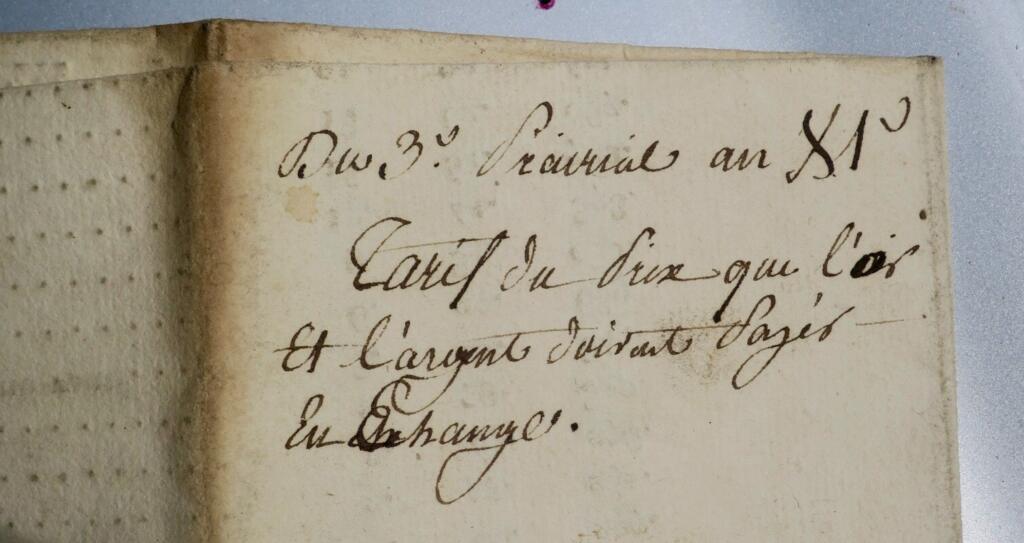 Du 3.e Prairial an XI.e
Tarif du Prix que l'or
Et l'argent doivent Payés
En Echange.